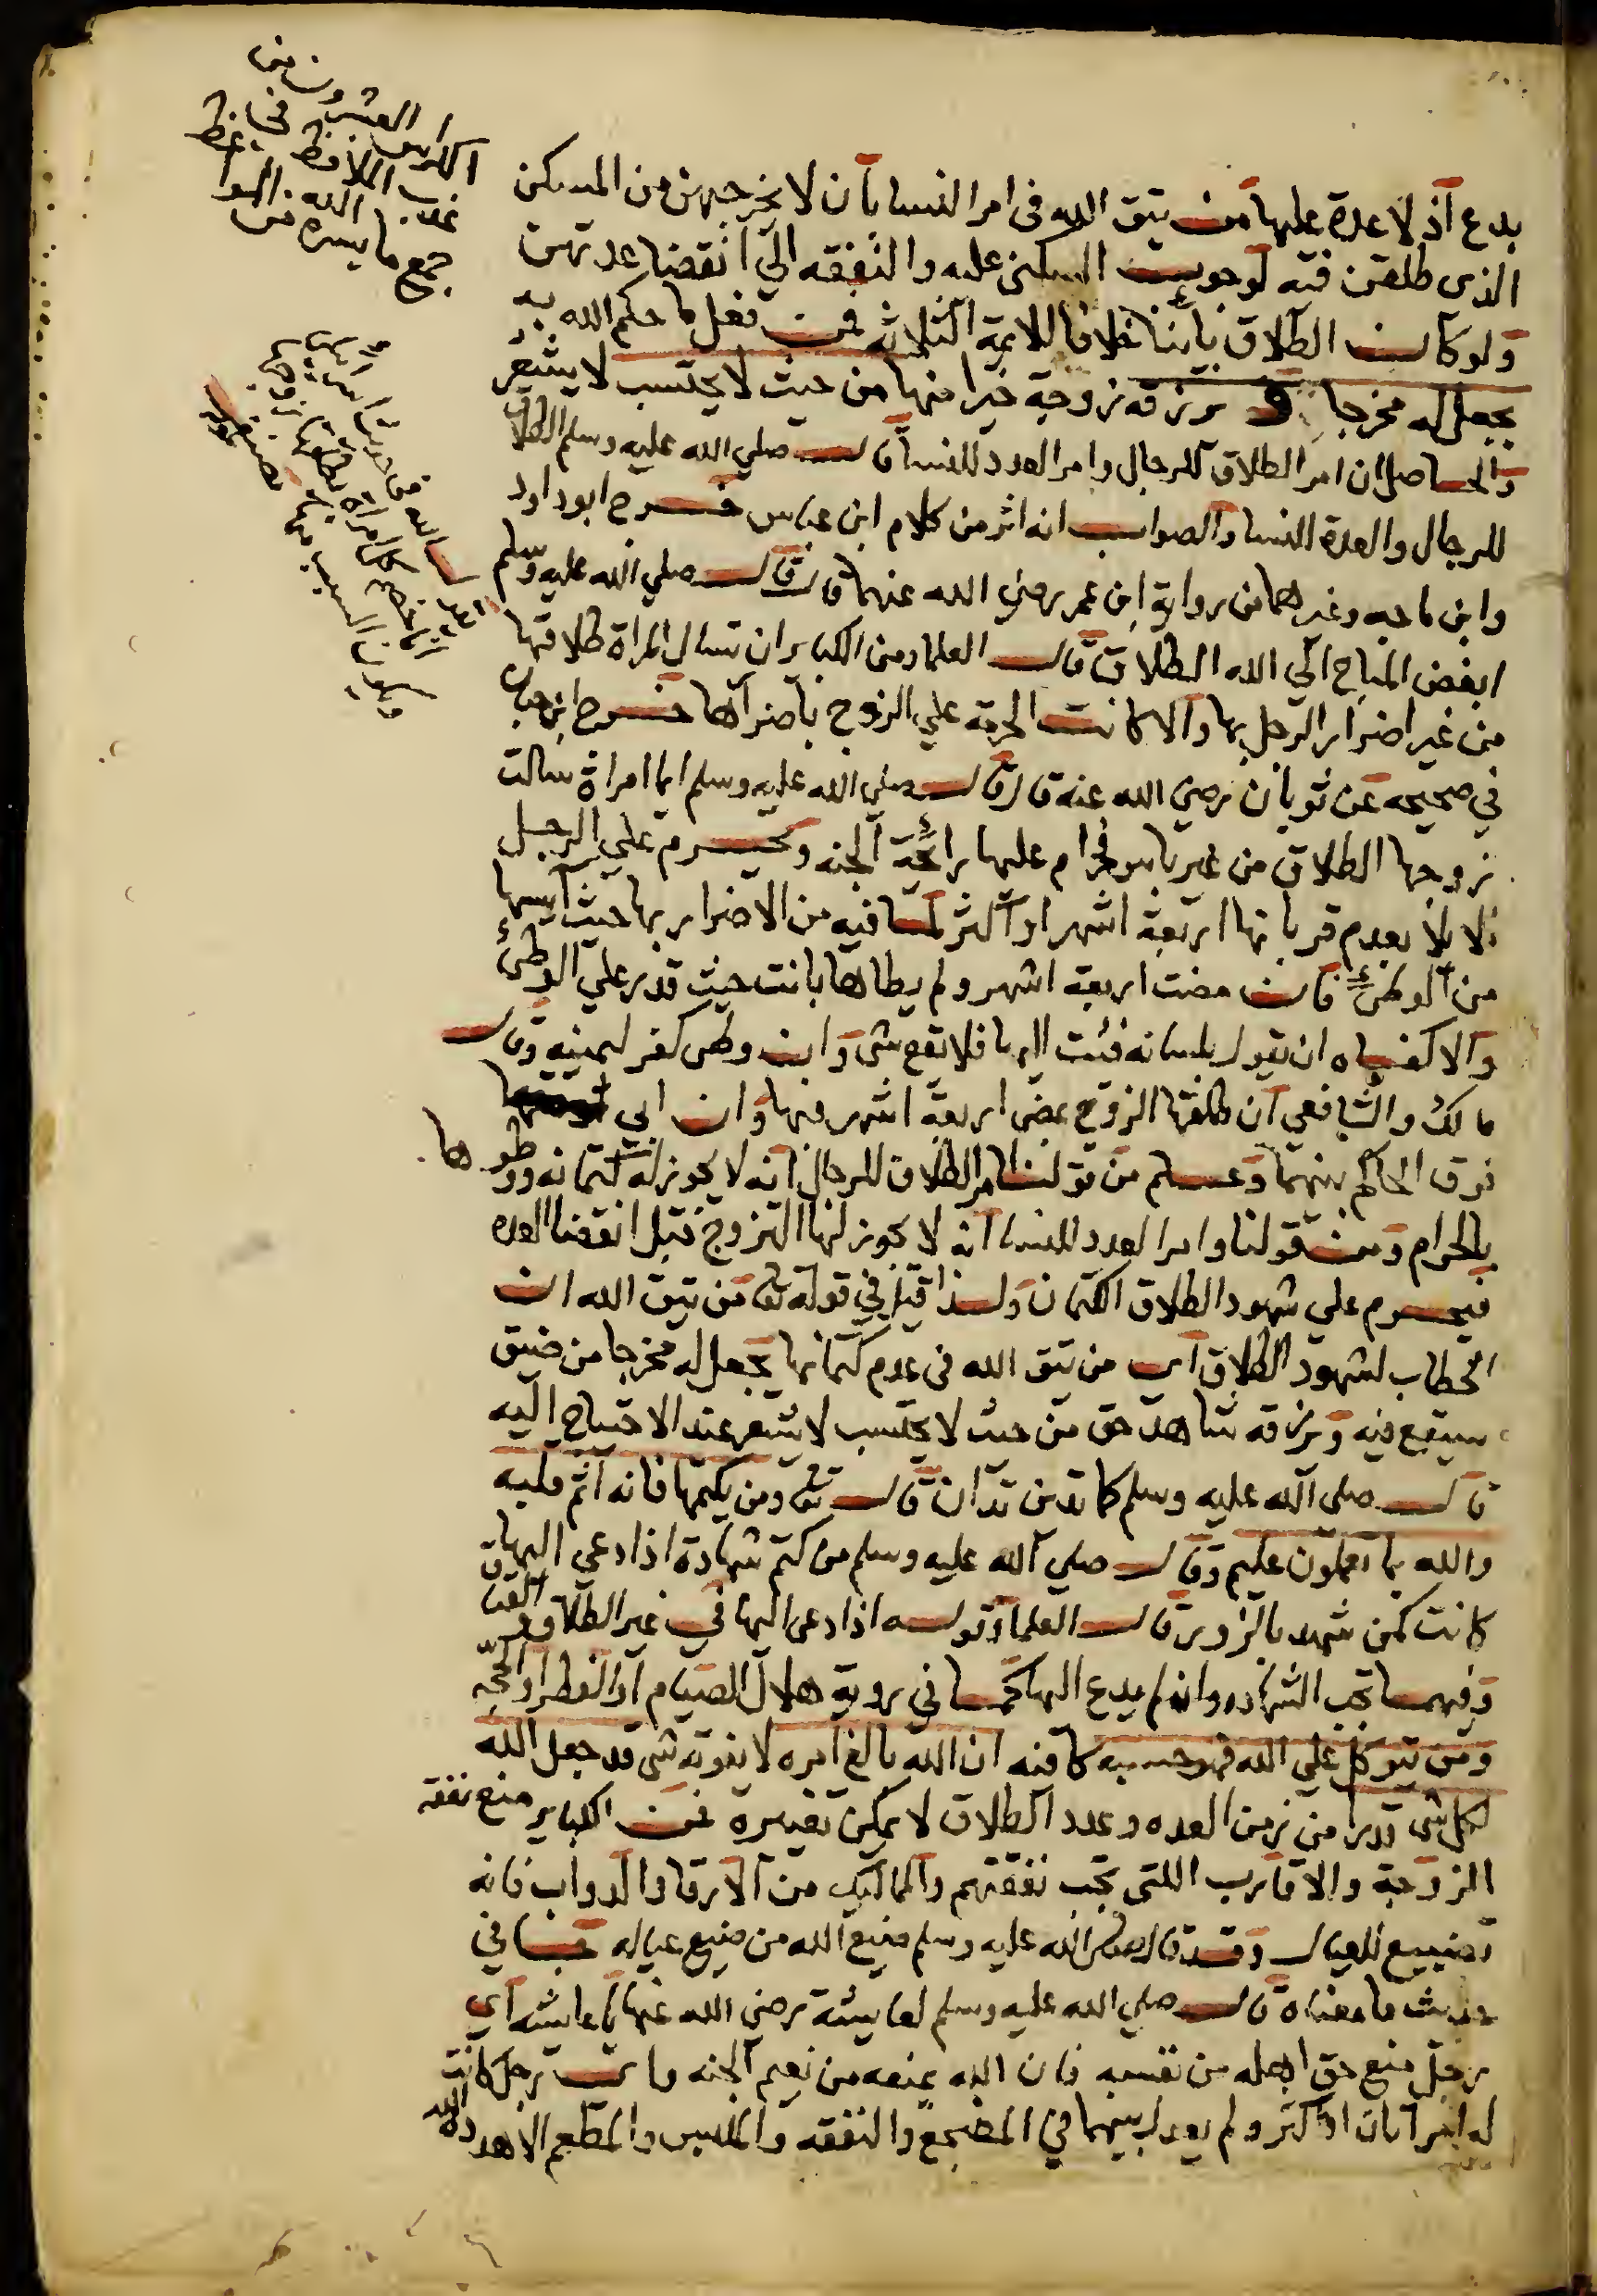 العشرون من
الكراس
جمع ما يسره من
بدع اذ لا عدة عليها من يتق الله فى امر النسا بان لا يخرجهن من المسكن
الذى طلقن فيه لوجوب السكنى عليه والنفقه الي انقضا عدتهن
ولو كان الطلاق باينا خلافا للايمة الثلاثة فمن فعل ما حكم الله به
يجعل له مخرجا و يرزقه زوجة خيرا منها من حيث لا يحتسب لا يشعر
والحاصل ان امر الطلاق للرجال وامر العدد للنسا قال صلي الله عليه وسلم الطلاق
للرجال والعدة للنسا والصواب انه اثر من كلام ابن عباس خرج ابو داود
وابن ماجه وغيرهما من رواية ابن عمر رضي الله عنهما قال قال صلي الله عليه وسلم
ابغض المباح الي الله الطلاق قال العلما ومن الكباير ان تسال المراة طلاقها
من غير اضرار الرجل بها والا كانت الحرمة علي الزوج باضرارها خرج ابن حبان
في صحيحه عن ثوبان رضي الله عنه قال قال صلي الله عليه وسلم ايما امراة سالت
زوجها الطلاق من غير باس فحرام عليها رائحة الجنه ويحرم علي الرجل
الايلا بعدم قربانها اربعة اشهر او اكثر لما فيه من الاضرار بها حيث ايسها
من الوطئ فان مضت اربعة اشهر ولم يطاها بانت حيث قدر علي الوطئ
والا كفاه ان يقول بلسانه فئت اليها فلا يقع شى وان وطى كفر ليمينه وقال
مالك والشافعي ان طلقها الزوج بمضى اربعة اشهر فيها وان ابي
فرق الحاكم بينهما وعلم من قولنا امر الطلاق للرجال انه لا يجوز له كتمانه ووطوها
بالحرام ومن قولنا وامر العدد للنسا انه لا يجوز لها التزوج قبل انقضا العده
فيحرم علي شهود الطلاق الكتمان ولذا قيل في قوله تع من يتق الله ان
الخطاب لشهود الطلاق اى من يتق الله فى عدم كتمانها يجعل له مخرجا من ضيق
سيقع فيه ويرزقه شاهد حق من حيث لا يحتسب لا يشعر عند الاحتياج اليه
قال صلى الله عليه وسلم كما تدين تدان قال تع ومن يكتمها فانه اثم قلبه
والله بما تعملون عليم وقال صلي الله عليه وسلم من كتم شهادة اذا دعي اليها
كانت كمن شهد بالزور قال العلما وقوله اذا دعى اليها في غير الطلاق والعتاق
وفيهما تجب الشهاده وان لم يدع اليها كما في روية هلال الصيام او الفطر او الحجه
ومن يتوكل علي الله فهو حسبه كافيه ان الله بالغ امره لا يفوته شى قد جعل الله
لكل شى قدرا من زمن العده وعدد الطلاق لا يمكن تغييره فمن الكباير منع نفقة
الزوجة والاقارب اللتى تجب نفقتهم والمماليك من الارقا والدواب فانه
تضييع للعيال وقد قال صلى الله عليه وسلم ضيع الله من ضيع عياله فما في
حديث ما معناه قال صلي الله عليه وسلم لعايشة رضي الله عنها يا عايشه اي
رجل منع حق اهله من نفسه فان الله يمنعه من نعيم الجنه واى رجل كانت
له امراتان او اكثر ولم يعدل بينهما في المضجع والنفقه والملبس والمطعم الا هدده الله